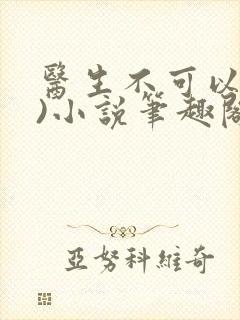 醫生不可以
)小說筆趣閣
亞努科維奇